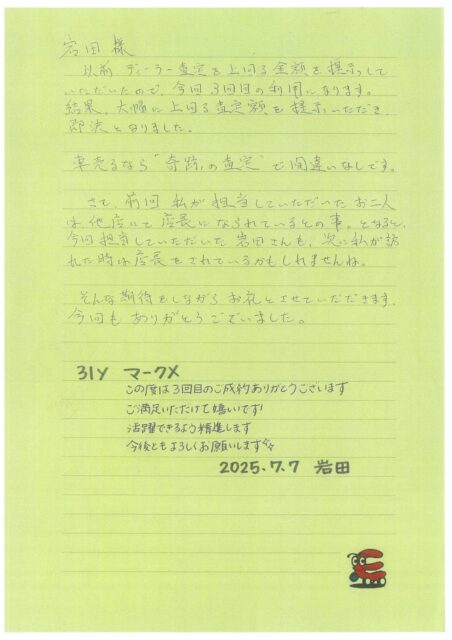 岩田様
以前 ディーラー査定を上回る金額を提示して
いただいたので、今回3回目の利用になります。
結果、大幅に上回る査定額を提示いただき
即決となりました。
車売るなら“奇跡の査定”で間違いなしです。
さて、前回 私が担当していただいた お二人
は他店にて店長になられているとの事。となると、
今回担当していただいた 岩田さんも、次に私が訪
れた時は店長をされているかもしれませんね。
そんな期待をしながら お礼とさせていただきます。
今回も ありがとうございました。
31Y マークX
この度は3回目のご成約ありがとうございます
ご満足いただけて嬉しいです!
活躍できるよう精進します
今後ともよろしくお願いします
2025.7.7 岩田